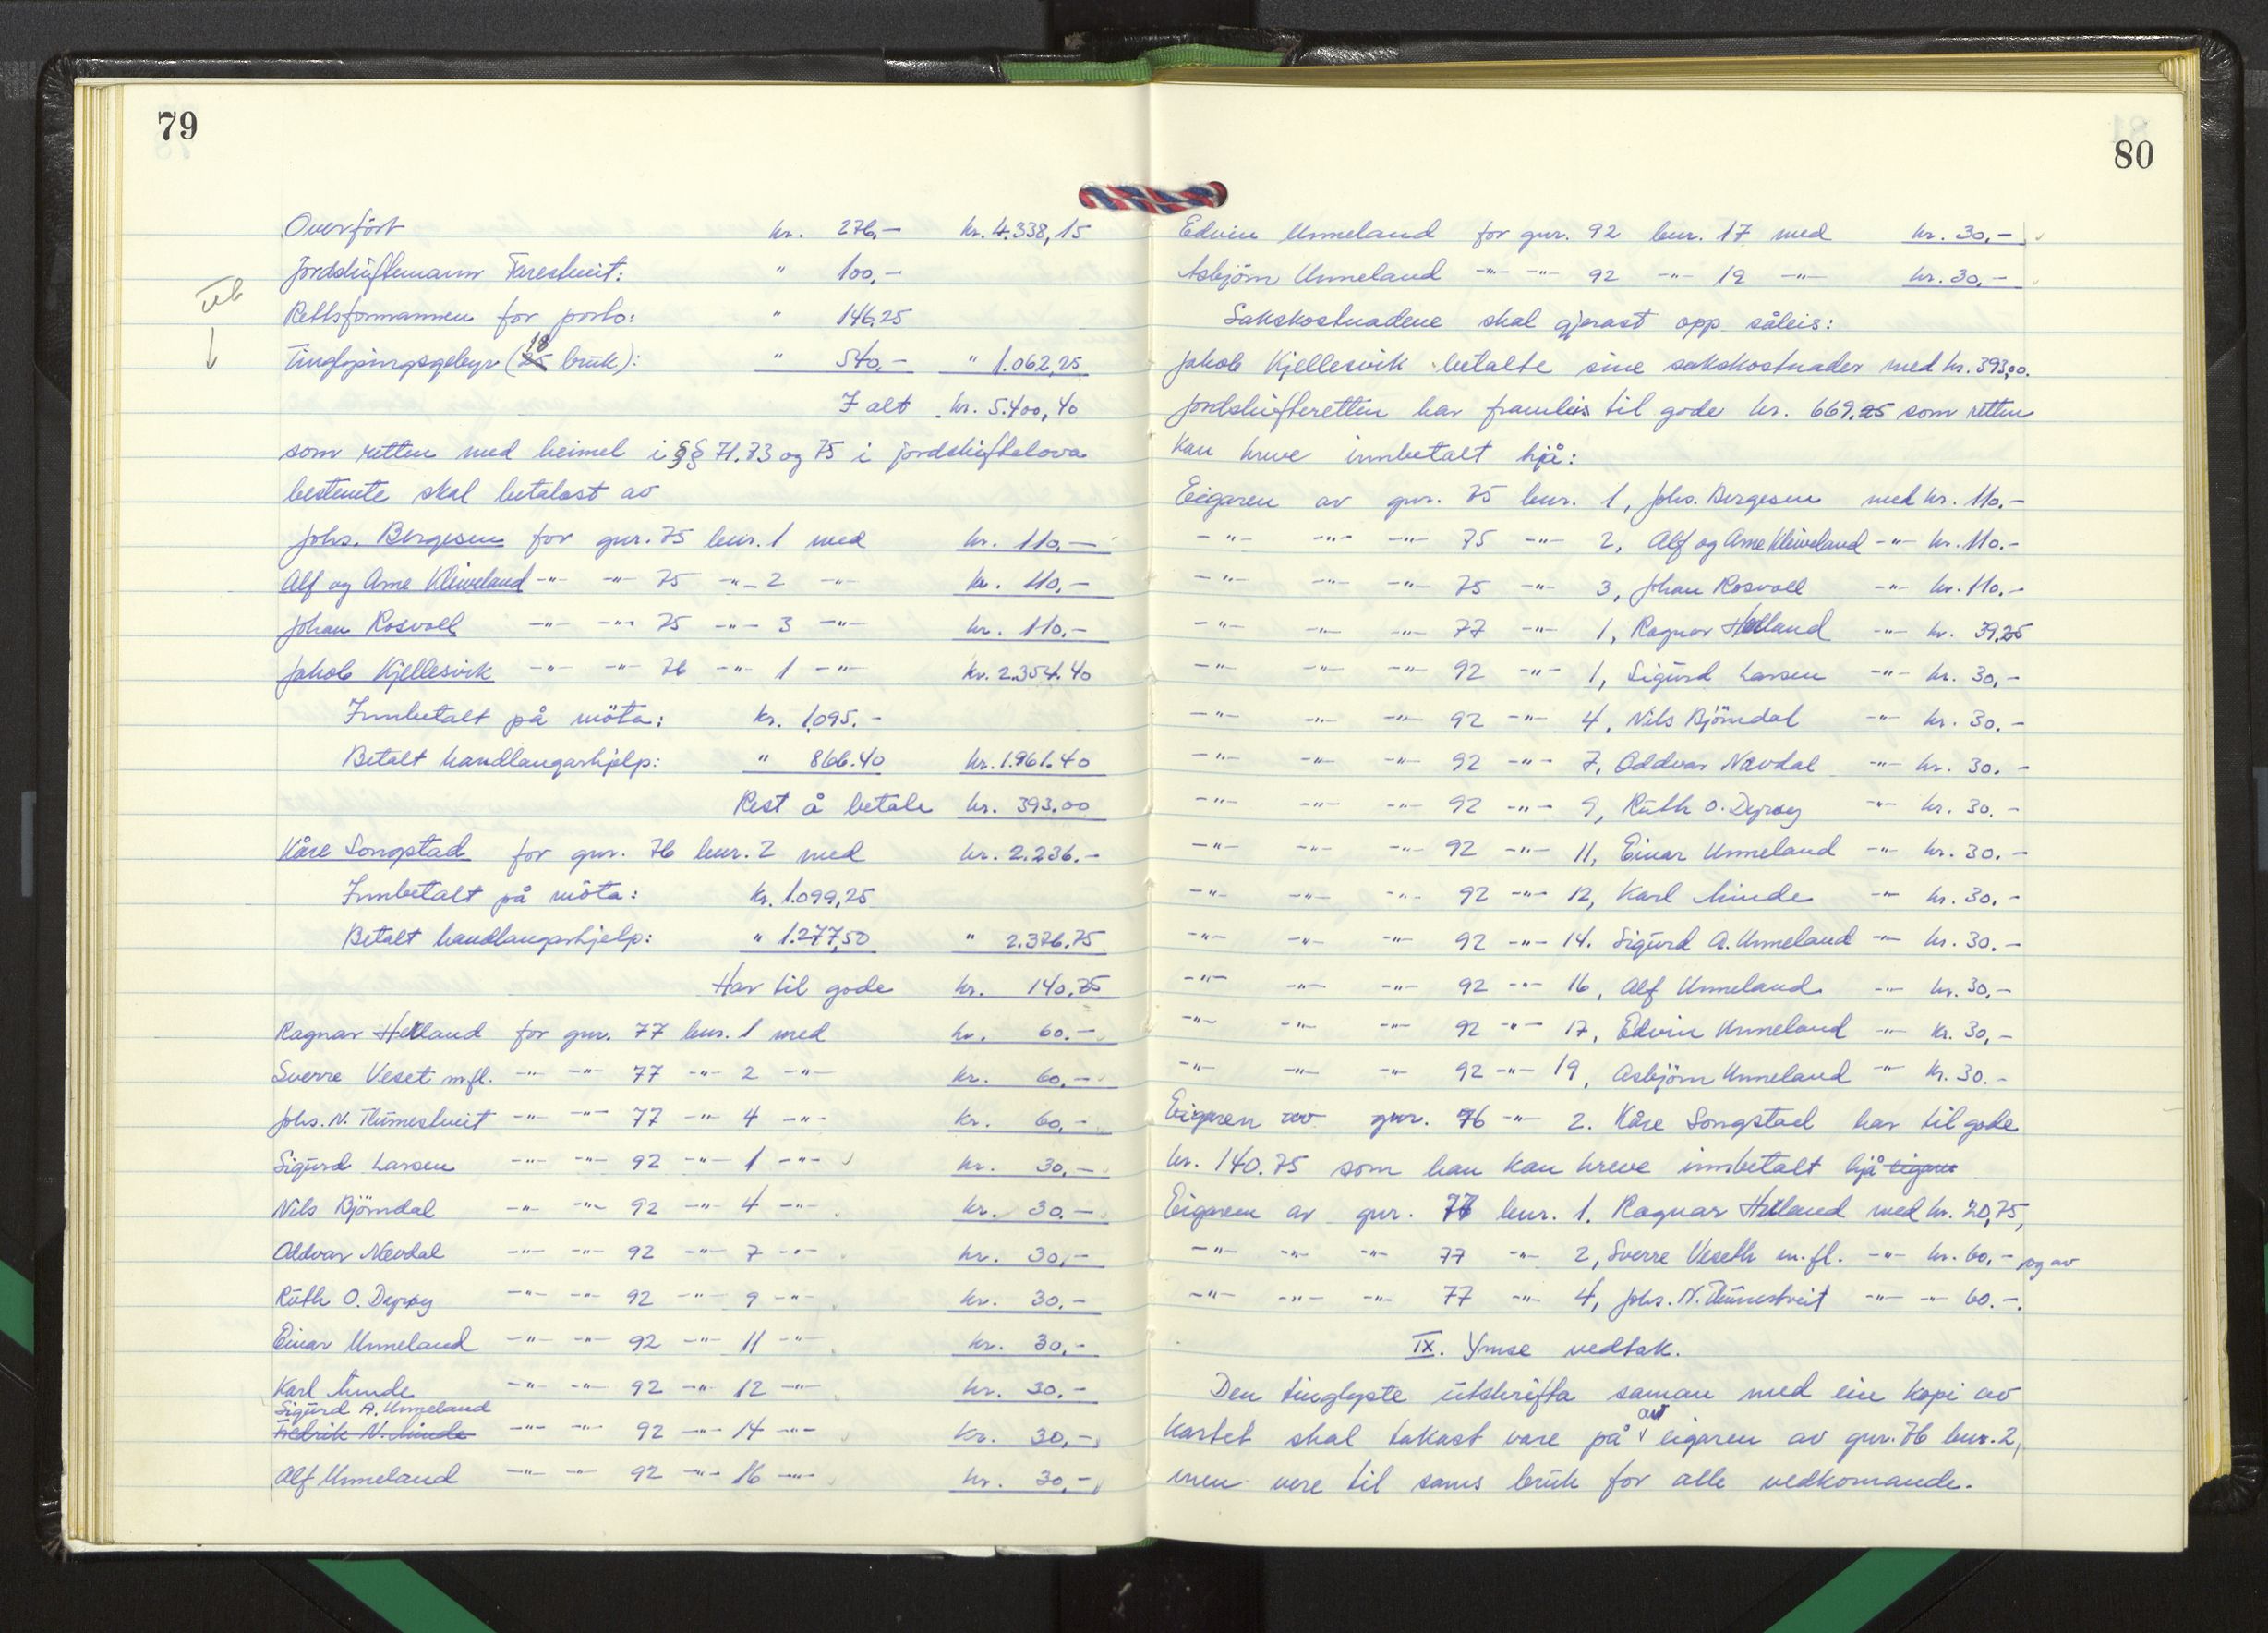 79
Overfört kr. 276,- kr. 4.338,15
Jordskiftemann Tarestveit: " 100,-
Rettsformannen for porto: " 146,25
Tinglysingsgebyr (25 18 bruk): " 540,- " 1.062,25
I alt kr. 5.400,40
som retten med heimel i §§ 71.73 og 75 i jordskiftelova
bestemte skal betalast av
Johs. Bergesen for gnr. 75 bnr. 1 med kr. 110,-
Alf og Arne Kleiveland -"- -"- 75 -"- 2 -"- kr. 110,-
Johan Rosvoll -"- -"- 75 -"- 3 -"- kr. 110,-
Jakob Kjellesvik -"- -"- 76 -"- 1 -"- kr. 2.354.40
Innbetalt på möta: kr. 1,095.-
Betalt handlangarhjelp: " 866.40 kr. 1.961.40
Rest å betale kr. 393.00
Kåre Songstad for gnr. 76 bnr. 2 med kr. 2.236.-
Innbetalt på möta: kr. 1.099,25
Betalt handlangarhjelp: " 1.277,50 " 2.376.75
Har til gode kr. 140.75
Ragnar Helland for gnr. 77 bnr. 1 med kr. 60.-
Sverre Veset m.fl. -"- -"- 77 -"- 2 -"- kr. 60,-
Johs. N. Tümestveit -"- -"- 77 -"- 4 -"- kr. 60,-
Sigurd Larsen -"- -"- 92 -"- 1 -"- kr. 30,-
Nils Björndal -"- -"- 92 -"- 4 -"- kr. 30.-
Oddvar Nævdal -"- -"- 92 -"- 7 -"- kr. 30,-
Ruth O. Dyrøy -"- -"- 92 -"- 9 -"- kr. 30.-
Einar Unneland -"- -"- 92 -"- 11 -"- kr. 30,-
Karl Minde -"- -"- 92 -"- 12 -"- kr. 30.-
Sigurd A. Unneland
Fredrik N. Minde -"- -"- 92 -"- 14 -"- kr. 30,-
Alf Unneland -"- -"- 92 -"- 16 -"- kr. 30,-
80
Edvin Unneland for gnr. 92 bnr. 17 med kr. 30,-
Asbjörn Unneland -"- -"- 92 -"- 19 -"- kr. 30,-
Sakskostnadene skal gjerast opp såleis:
Jakob Kjellesvik betalte sine sakskostnader med kr. 393,00.
Jordskifteretten har framleis til gode kr. 669.25 som retten
kan kreve innbetalt hjå:
Eigaren av gnr. 75 bnr. 1, Johs. Bergesen med kr. 110.-
-"- -"- -"- 75 -"- 2, Alf og Arne Kleiveland -"- kr. 110.-
-"- -"- -"- 75 -"- 3, Johan Rosvoll -"- kr. 110.-
-"- -"- -"- 77 -"- 1, Ragnar Helland -"- kr. 39,25
-"- -"- -"- 92 -"- 1, Sigurd Larsen -"- kr. 30,-
-"- -"- -"- 92 -"- 4, Nils Björndal -"- kr. 30.-
-"- -"- -"- 92 -"- 7. Oddvar Nævdal -"- kr. 30.-
-"- -"- -"- 92 -"- 9, Ruth O. Dyrøy -"- kr. 30.-
-"- -"- -"- 92 -"- 11, Einar Unneland -"- kr. 30.-
-"- -"- -"- 92 -"- 12, Karl Minde -"- kr. 30.-
-"- -"- -"- 92 -"- 14. Sigurd A. Unneland -"- kr. 30.-
-"- -"- -"- 92 -"- 16, Alf Unneland -"- kr. 30,-
-"- -"- -"- 92 -"- 17, Edvin Unneland -"- kr. 30,-
-"- -"- -"- 92 -"- 19, Asbjörn Unneland -"- kr. 30.-
Eigaren av gnr. 76 -"- 2. Kåre Songstad har til gode
kr. 140.75 som han kan kreve innbetalt hjå eigaren
Eigaren av gnr. 77 bnr. 1. Ragnar Helland med kr. 20,75,
-"- -"- -"- 77 -"- 2, Sverre Veseth m.fl. -"- kr. 60,- og av
-"- -"- -"- 77 -"- 4, Johs. N. Tümestveit -"- -"- 60.-.
IX. Ymse vedtak.
Den tinglyste utskrifta saman med ein kopi av
kartet skal takast vare på av eigaren av gnr. 76 bnr. 2,
men vere til sams bruk for alle vedkomande.